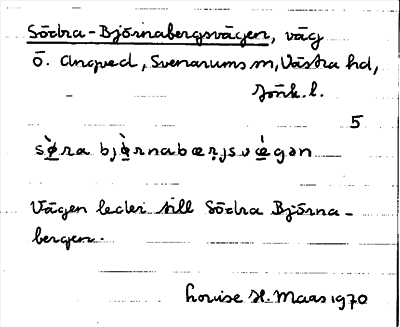 Södra-Björnabergsvägen, väg
Ö. Angved, Svenarums sn, Västra hd,
Jönk. l.
5
sø̀ra bjø̀rnabæṛjsvæ̀gən
Vägen leder till Södra Björna-
bergen.
Louise H. Maas 1970